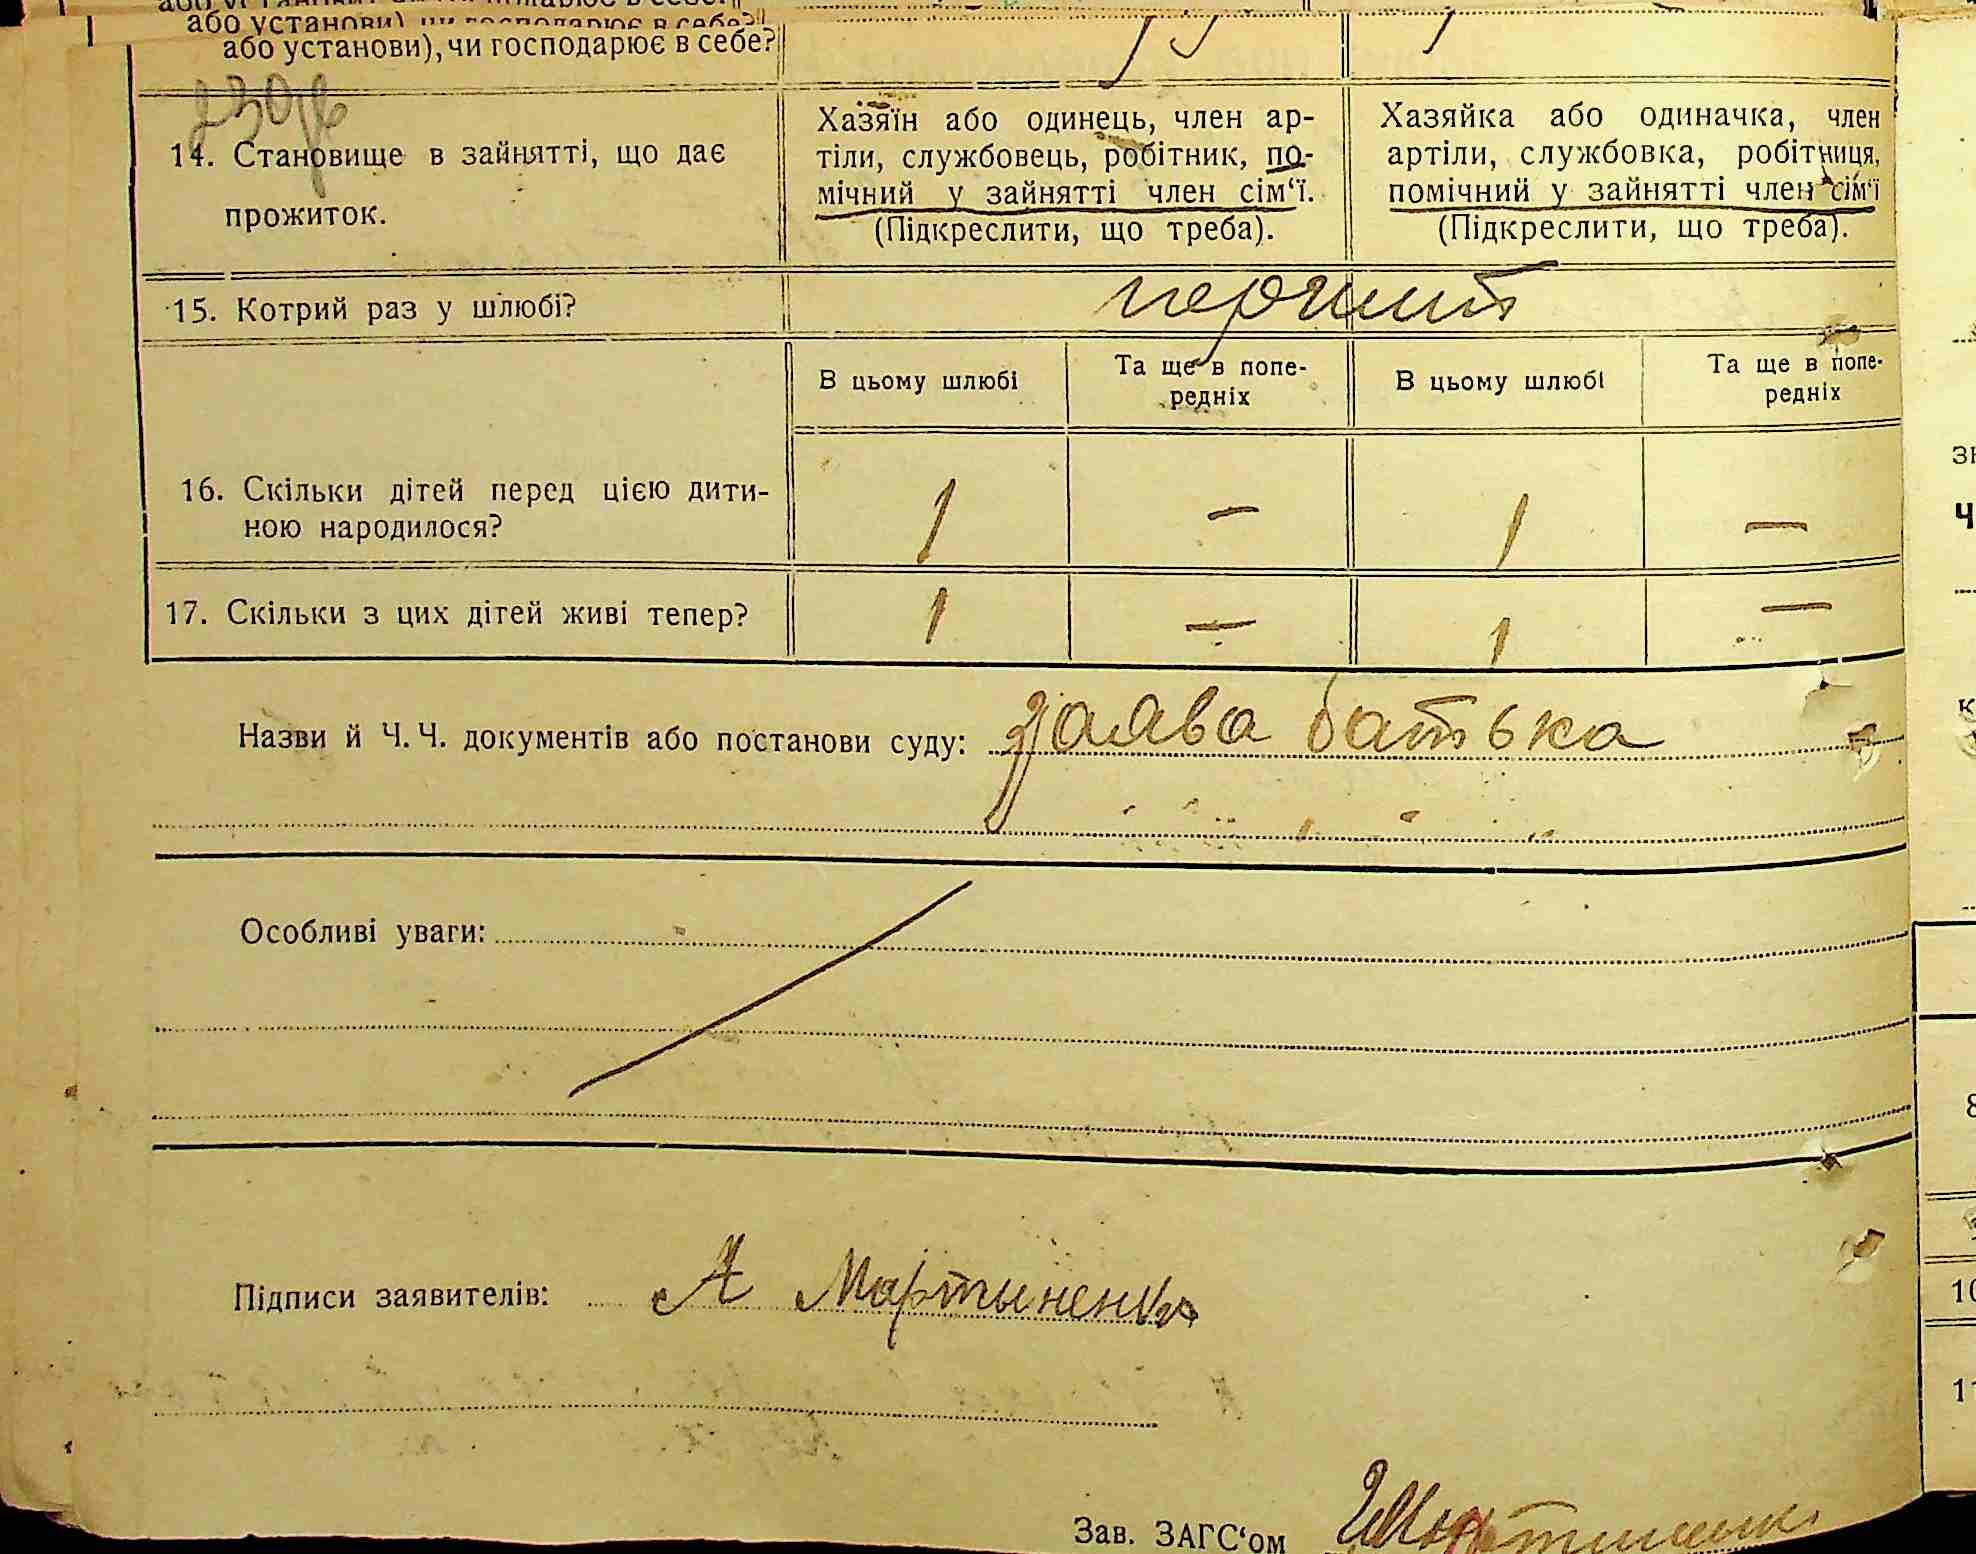 або установи), чи господарює в себе?
або установи), чи господарює в себе?
14. Становище в зайнятті, що дає
прожиток.
Хазяїн або одинець, член ар-
тіли, службовець, робітник, по-
мічний у зайнятті член сім‘ї.
(Підкреслити, що треба).
Хазяйка або одиначка, член
артіли, службовка, робітниця,
помічний у зайнятті член сім‘ї
(Підкреслити, що треба).
15. Котрий раз у шлюбі?
перший
В цьому шлюбі
Та ще в попе-
редніх
В цьому шлюбі
Та ще в попе-
редніх
16. Скільки дітей перед цією дити-
ною народилося?
1 — 1 —
17. Скільки з цих дітей живі тепер?
1 — 1 —
Назви й Ч. Ч. документів або постанови суду: заява батька
Особливі уваги:
Підписи заявителів: А Мартыненко
Зав. ЗАГС‘ом
зн
Ч
к
8
10
11